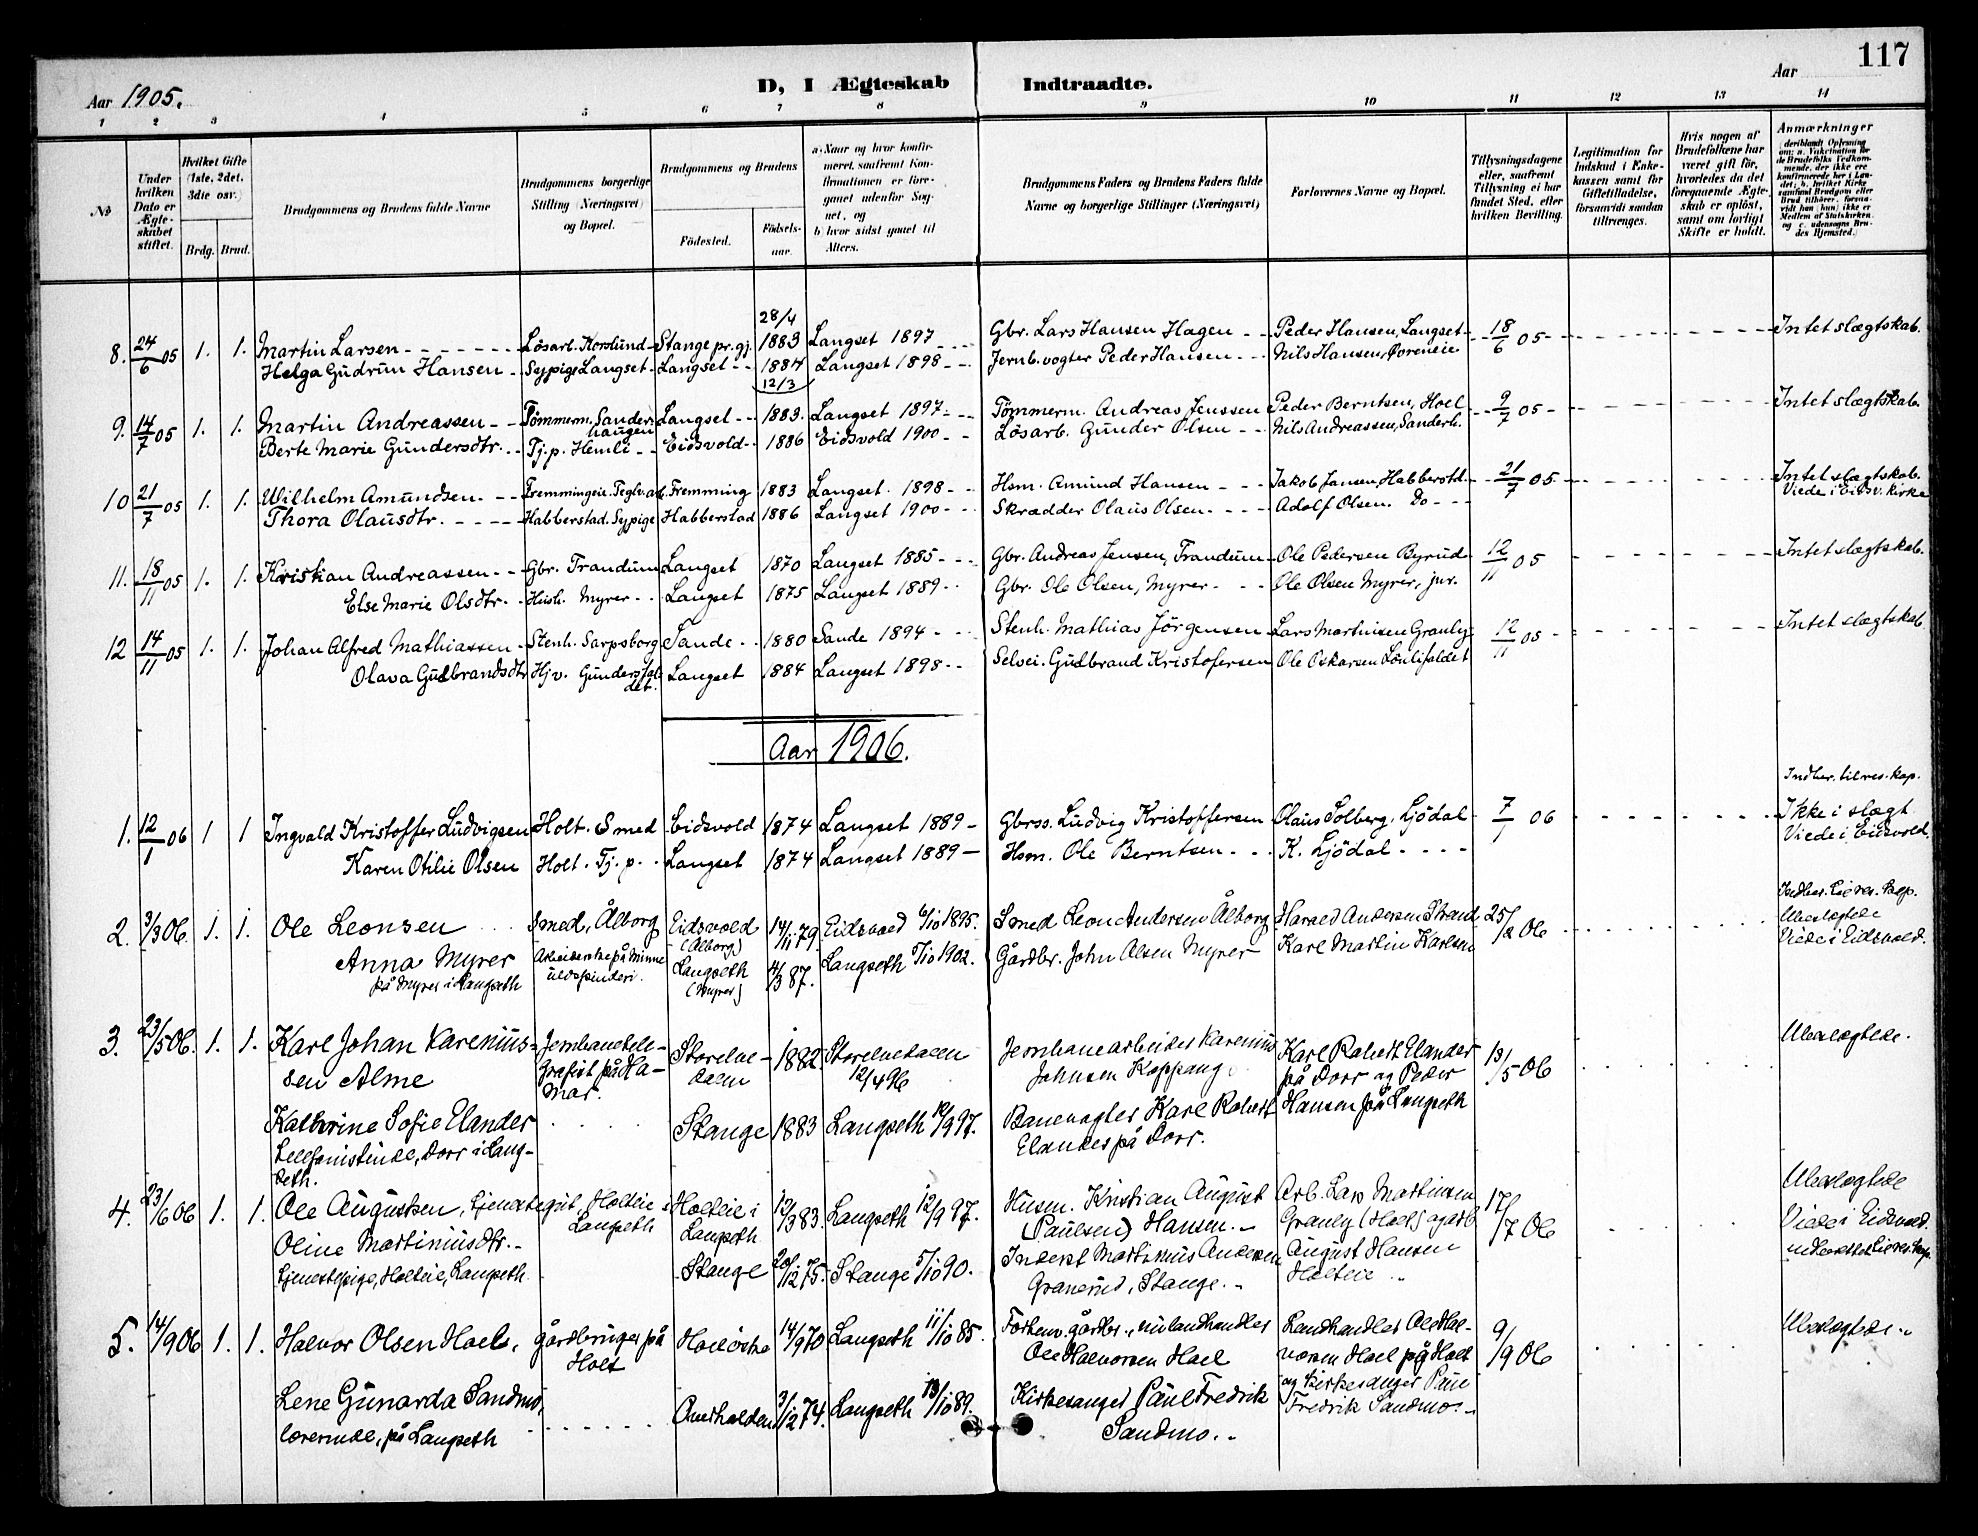 117
Aar 1905. D, I Ægteskab Indtraadte. Aar
1 2 3 4 5 6 7 8 9 10 11 12 13 14
No
Under hvilken Dato er Ægteskabet stiftet.
Hvilket Gifte (1ste, 2det, 3die osv.)
Brdg. Brud.
Brudgommens og Brudens fulde Navne
Brudgommens borgerlige Stilling (Næringsvei) og Bopæl.
Brudgommens og Brudens
Fødested. Fødselsaar.
a) Naar og hvor konfirmeret, saafremt Konfirmationen er foregaaet udenfor Sognet, og
b) hvor sidst gaaet til Alters.
Brudgommens Faders og Brudens Faders fulde Navne og borgerlige Stillinger (Næringsvei)
Forlovernes Navne og Bopæl.
Tillysningsdagene eller, saafremt Tillysning ei har fundet Sted, efter hvilken Bevilling.
Legitimation for Indskud i Enkekassen samt for Giftetilladelse, forsaavidt saadan tiltrænges.
Hvis nogen af Brudefolkene har været gift før, hvorledes da det foregaaende Ægteskab er opløst, samt om lovligt Skifte er holdt.
Anmærkninger
28/4
8. 24/6 05 1. 1. Martin Larsen Løsarb. Korslund Stange pr.gj. 1883 Langset 1897 Gbr. Lars Hansen Hagen Peder Hansen, Langset 18/6 05 Intet slægtskab.
Helga Gudrun Hansen Sypige Langset Langset 1884 Langset 1898 Jernb.vogter Peder Hansen Nils Hansen,
12/3
9. 14/7 05 1. 1. Martin Andreassen Tømmerm. Sanderhaugen Langset 1883. Langset 1897 Tømmerm. Andreas Jenssen Peder Berntsen, Hoel 9/7 05 Intet slægtskab.
Berte Marie Gundersdtr. Tj.p. Hemli Eidsvold 1886 Eidsvold 1900 Løsarb. Gunder Olsen Nils Andreassen, Sanderh.
10 21/7 05 1. 1. Wilhelm Amundsen. Fremmingeie. Fremming 1883 Langset. 1898 Hsm. Amund Hansen Jakob Jansen, Habberstd. 21/7 05 Intet slægtskab.
Viede i Eidsv. kirke
Thora Olausdtr. Habberstad. Sypige Habberstad 1886 Langset 1900 Skrædder Olaus Olsen Adolf Olsen. Do
11. 18/11 05 1. 1. Kristian Andreassen Gbr. Trandum Langset 1870 Langset 1885 Gbr. Andreas Jensen, Trandum Ole Pedersen Byrud 12/11 05 Intet slægtskab.
Else Marie Olsdtr. Hush. Myrer Langset 1875 Langset 1889 Gbr. Ole Olsen, Myrer Ole Olsen Myrer, jur.
12 14/11 05 1. 1. Johan Alfred Mathiassen Stenh. Sarpsborg Sande 1880 Sande 1894 Stenh. Mathias Jørgensen Lars Martinsen Granly 12/11 05 Intet slægtskab
Olava Gudbrandsdtr Hjv. Gundersfaldet. Langset 1884 Langset 1898 Selvei. Gudbrand Kristofersen Ole Oskarsen
Aar 1906.
Indber. til res. kap.
1. 12/1 06 1 1 Ingvald Kristoffer Ludvigsen Holt. Smed Eidsvold 1874 Langset 1889 Gbrss. Ludvig Kristoffersen Olaus Solberg, Ljødal 7/1 06 Ikke i slægt
Viede i Eidsvold.
Karen Otilie Olsen Holt. Tj.p. Langset 1874 Langset 1889 Hsm. Ole Berntsen K. Ljødal
2. 3/3 06. 1. 1. Ole Leonsen Smed, Ålborg Eidsvold (Ålborg) 14/11 79. Eidsvold 6/10 1895. Smed Leon Andersen Ålborg Harald Andersen Strand 25/2 06 Indber. til res. kap.
Ubeslegtede
Viede i Eidsvold.
Anna Myrer Arbeiderske på Minne uldspinderi. Langseth (Myrer) 4/3 87. Langseth 5/10 1902. Gårdbr. John Olsen Myrer Karl Martin Karlsen
på Myrer i Langseth
3. 23/5 06. 1. 1. Karl Johan Kareniussen Alme Jernbanetelegrafist på Hamar. Storelvedalen 1882 Storelvedalen 12/4 96 Jernbanearbeider Karenius Johnsen Koppang Karl Robert Elander på Dorr og Peder Hansen på Langseth 13/5 06 Ubeslegtede.
Kathrine Sofie Elander Stange 1883 Langseth 12/9 97. Banevogter Karl Robert Elander på Dorr.
Telefonistinde, Dorr i Langseth.
4. 23/6 06 1. 1. Ole Augustsen, Tjenestegut, Holteie i Langseth Holteie i Langseth 12/3 83. Langseth 12/9 97. Husm. Kristian August (Paulsen) Hansen. Arb. Lars Martinsen Granly (Holt) og arb. August Hansen Holteie 17/7 06 Ubeslegtede
Viede i Eidsvold.
Oline Martiniusdtr. Stange 20/12 75. Stange 5/10 90. Inderst Martinius Andersen Granerud, Stange.
Tjenestepige, Holteie, Langseth.
5. 14/9 06 1. 1. Halvor Olsen Hoels, gårdbruger på Holt Hoel østre 14/9 70 Langseth 11/10 85. Forhenv. gårdbr., nu landhandler Ole Halvorsen Hoel Landhandler Ole Halvorsen Hoel på Holt og kirkesanger Paul Fredrik Sandmo. 9/9 06 Ubeslegtede.
Lene Gunarda Sandmo, lærerinde, på Langseth 3/12 74. Langseth 13/10 89. Kirkesanger Paul Fredrik Sandmo.